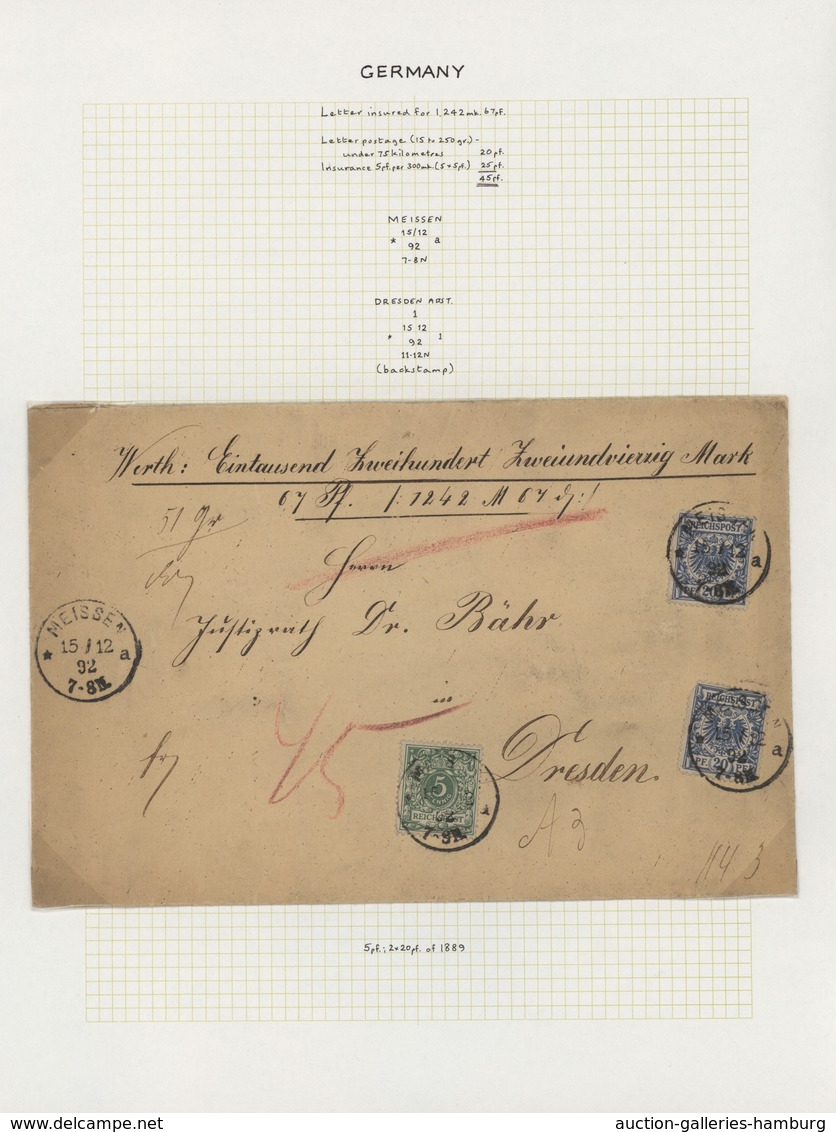 GERMANY
Letter insured for 1,242mk. 67pf.
Letter postage (15 to 250 gr.) -
under 75 kilometres 20pf.
Insurance 5pf. per 300mk. (5 x 5pf.) 25pf.
45pf.
MEISSEN
15/12
* 92 a
7-8N
DRESDEN ALTST.
1
15 12
* 92 1
11-12N
(backstamp)
Werth: Eintausend Zweihundert Zweiundvierzig Mark
67 Pf. /: 1242 M 67 :/
51 Gr
Herrn
Justizrath Dr. Bähr
in
Dresden.
45
MEISSEN
15/12
* 92 a
7-8N.
REICHSPOST
15/12
92 a
REICHSPOST
PF. 20 PF.
92 a
7-8N.
5
PFENNIG
REICHSPOST
7-8N.
A3
114 3
5pf.; 2x20pf. of 1889
www.stampcircuit.com
auction-galleries-hamburg